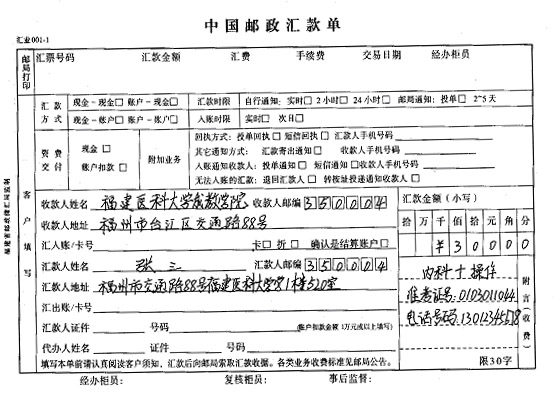 中国邮政汇款单
汇业001-1
邮局打印
汇票号码 汇款金额 汇费 手续费 交易日期 经办柜员
汇款方式 现金－现金□ 账户－现金□ 现金－账户□ 账户－账户□
汇款时限 自行通知：实时□ 2小时□ 24小时□ 邮局通知：投单□ 2~5天
入账时限 实时□ 次日□
资费交付 现金□ 账户扣款□
附加业务
回执方式：投单回执□ 短信回执□ 汇款人手机号码
其它通知方式：汇款寄出通知□ 收款人手机号码
入账通知收款人：投单通知□ 短信通知□收款人手机号码
无法入账的汇款：退回汇款人□ 转按址投递通知收款人□
客户填写
收款人姓名 福建医科大学成教学院 收款人邮编 350004
收款人地址 福州市台江区交通路88号
汇入账/卡号 卡□ 折□ 确认是结算账户□
汇款人姓名 张三 汇款人邮编 350004
汇款人地址 福州市交通路88号福建医科大学1栋320室
汇出账/卡号
汇款人证件 号码 (账户扣款金额1万元或以上填写)
代办人姓名 证件 号码
汇款金额（小写）
拾 万 千 佰 拾 元 角 分
¥ 3 0 0 0 0
内科＋操作
准考证号:0103011044
电话号码:
附言（收费）
限30字
填写本单前请认真阅读客户须知，汇款后向邮局索取汇款收据。各类业务收费标准见邮局公告。
经办柜员： 复核柜员： 事后监督：